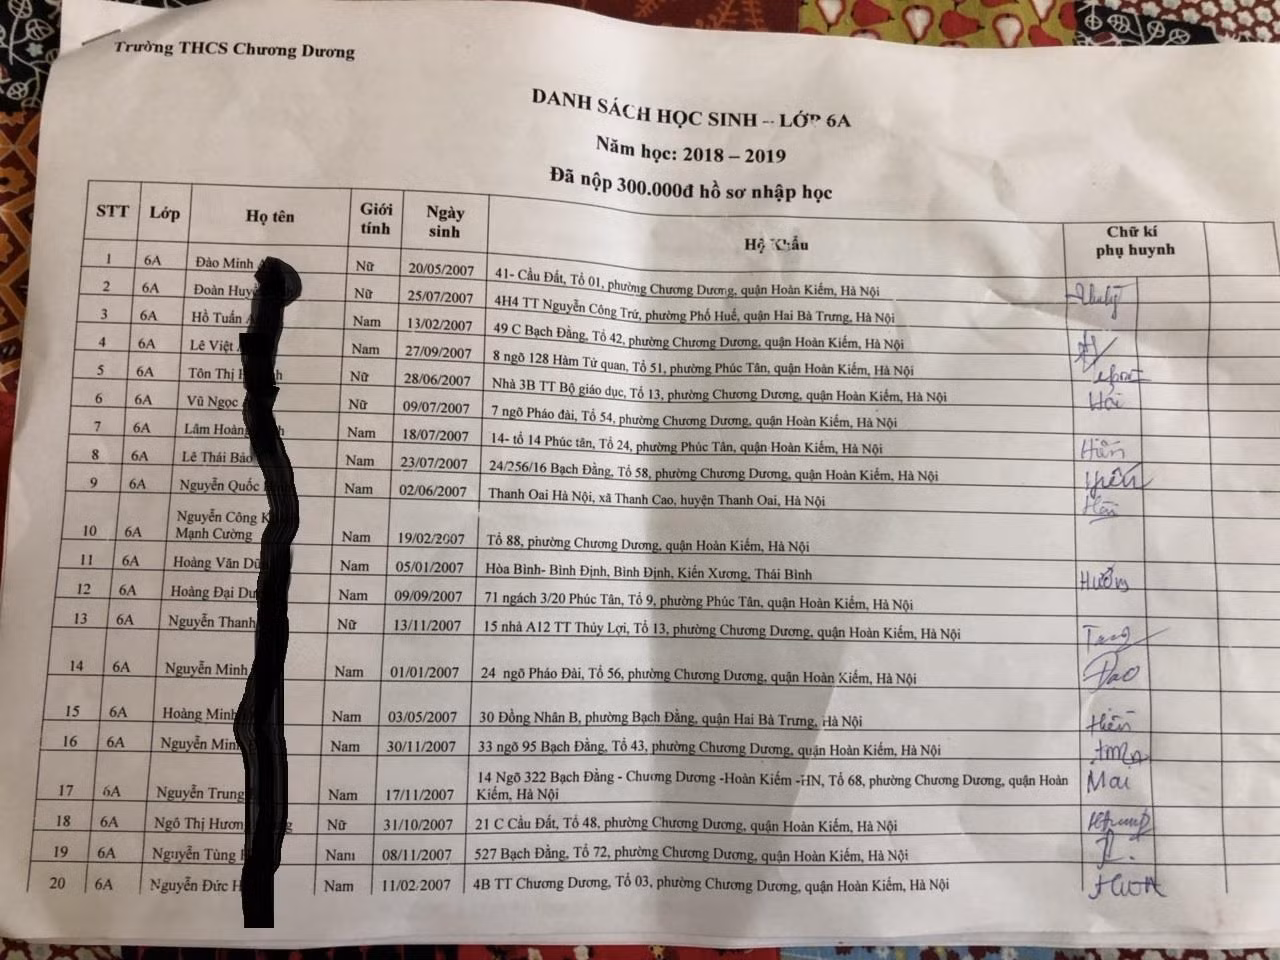 Trường THCS Chương Dương
DANH SÁCH HỌC SINH – LỚP 6A
Năm học: 2018 – 2019
Đã nộp 300.000đ hồ sơ nhập học
STT Lớp Họ tên Giới tính Ngày sinh Hộ Khẩu Chữ kí phụ huynh
1 6A Đào Minh Nữ 20/05/2007 41- Cầu Đất, Tổ 01, phường Chương Dương, quận Hoàn Kiếm, Hà Nội
2 6A Đoàn Nữ 25/07/2007 4H4 TT Nguyễn Công Trứ, phường Phố Huế, quận Hai Bà Trưng, Hà Nội
3 6A Hồ Tuấn Nam 13/02/2007 49 C Bạch Đằng, Tổ 42, phường Chương Dương, quận Hoàn Kiếm, Hà Nội
4 6A Lê Việt Nam 27/09/2007 8 ngõ 128 Hàm Tử quan, Tổ 51, phường Phúc Tân, quận Hoàn Kiếm, Hà Nội
5 6A Tôn Thị Nữ 28/06/2007 Nhà 3B TT Bộ giáo dục, Tổ 13, phường Chương Dương, quận Hoàn Kiếm, Hà Nội
6 6A Vũ Ngọc Nữ 09/07/2007 7 ngõ Pháo đài, Tổ 54, phường Chương Dương, quận Hoàn Kiếm, Hà Nội
7 6A Lâm Nam 18/07/2007 14- tổ 14 Phúc tân, Tổ 24, phường Phúc Tân, quận Hoàn Kiếm, Hà Nội Hiền
8 6A Lê Thái Bảo Nam 23/07/2007 24/256/16 Bạch Đằng, Tổ 58, phường Chương Dương, quận Hoàn Kiếm, Hà Nội
9 6A Nguyễn Quốc Nam 02/06/2007 Thanh Oai Hà Nội, xã Thanh Cao, huyện Thanh Oai, Hà Nội
10 6A Nguyễn Công
Mạnh Cường Nam 19/02/2007 Tổ 88, phường Chương Dương, quận Hoàn Kiếm, Hà Nội
11 6A Hoàng Văn Nam 05/01/2007 Hòa Bình- Bình Định, Bình Định, Kiến Xương, Thái Bình
12 6A Hoàng Đại Nam 09/09/2007 71 ngách 3/20 Phúc Tân, Tổ 9, phường Phúc Tân, quận Hoàn Kiếm, Hà Nội
13 6A Nguyễn Thanh Nữ 13/11/2007 15 nhà A12 TT Thủy Lợi, Tổ 13, phường Chương Dương, quận Hoàn Kiếm, Hà Nội
14 6A Nguyễn Minh Nam 01/01/2007 24 ngõ Pháo Đài, Tổ 56, phường Chương Dương, quận Hoàn Kiếm, Hà Nội
15 6A Hoàng Minh Nam 03/05/2007 30 Đồng Nhân B, phường Bạch Đằng, quận Hai Bà Trưng, Hà Nội
16 6A Nguyễn Minh Nam 30/11/2007 33 ngõ 95 Bạch Đằng, Tổ 43, phường Chương Dương, quận Hoàn Kiếm, Hà Nội
17 6A Nguyễn Trung Nam 17/11/2007 14 Ngõ 322 Bạch Đằng - Chương Dương -Hoàn Kiếm -HN, Tổ 68, phường Chương Dương, quận Hoàn
Kiếm, Hà Nội Mai
18 6A Ngô Thị Hương Nữ 31/10/2007 21 C Cầu Đất, Tổ 48, phường Chương Dương, quận Hoàn Kiếm, Hà Nội
19 6A Nguyễn Tùng Nam 08/11/2007 527 Bạch Đằng, Tổ 72, phường Chương Dương, quận Hoàn Kiếm, Hà Nội
20 6A Nguyễn Đức Nam 11/02/2007 4B TT Chương Dương, Tổ 03, phường Chương Dương, quận Hoàn Kiếm, Hà Nội